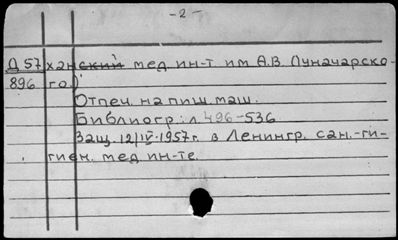 - 2 -
Д 57 ханский мед ин-т им А.В. Луначарско-
896 го)
Отпеч. на пиш. маш.
Библиогр: л 496-536
Защ. 12/IV-1957г. в Ленингр. сан.-ги-
гиен. мед ин-те.